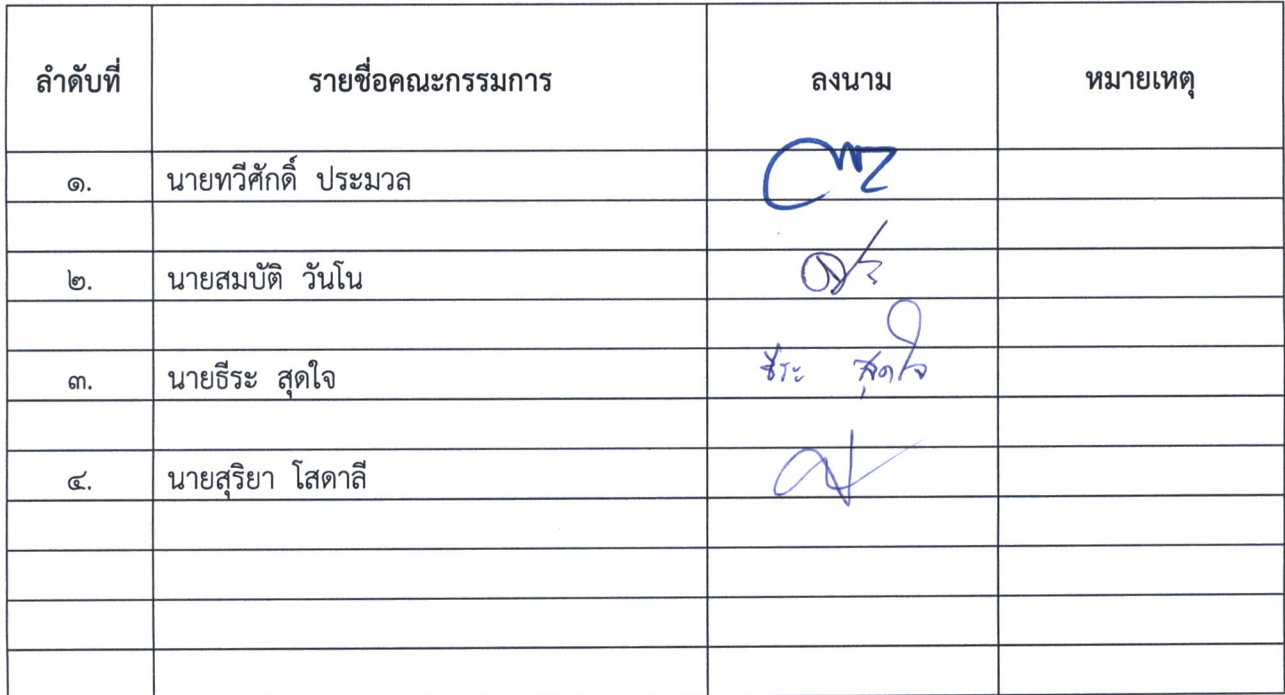 ลำดับที่ รายชื่อคณะกรรมการ ลงนาม หมายเหตุ
๑. นายทวีศักดิ์ ประมวล
๒. นายสมบัติ วันโน
๓. นายธีระ สุดใจ ธีระ สุดใจ
๔. นายสุริยา โสดาลี